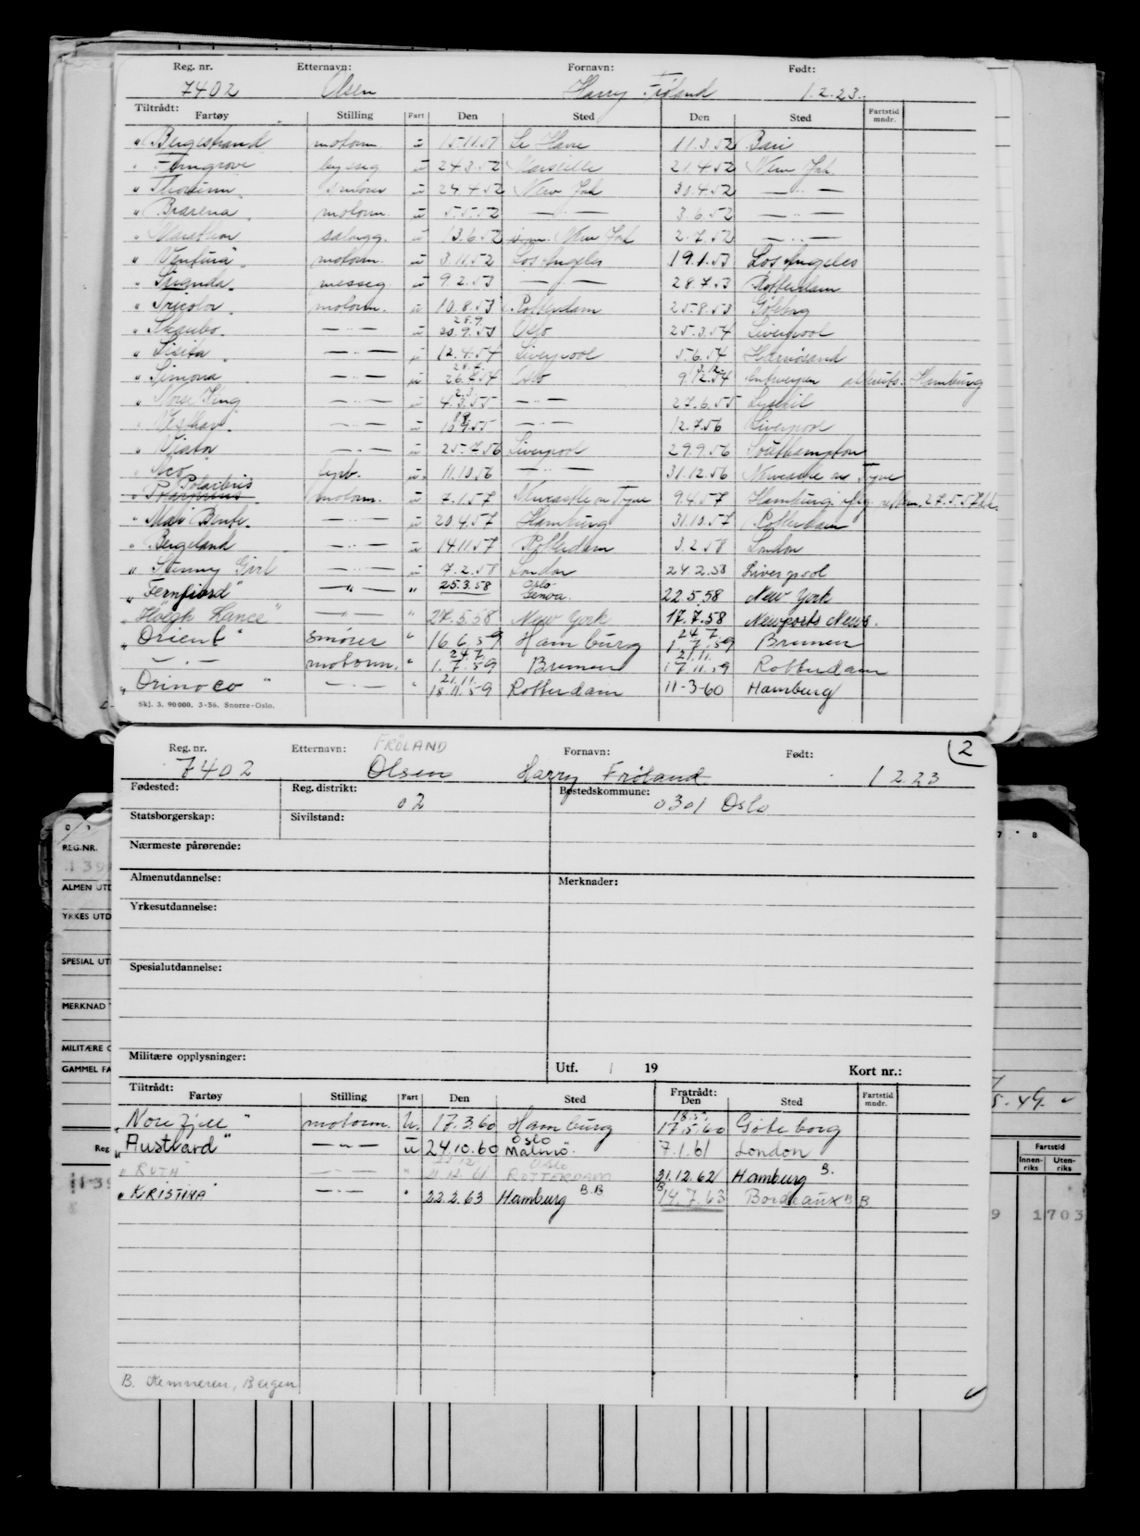 Reg. nr. Etternavn: Fornavn: Født:
7402 Olsen Harry Frøland 1.2.23.
Tiltrådt:
Fartøy Stilling Fart Den Sted Den Sted Fartstid mndr.
" Bergestrand motorm. u 15.11.51 Le Havre 11.3.52 Bari
" Ferngrove byssg u 24.3.52 Marseille 21.4.52 New York
" Thorunn u 24.4.52 New York 30.4.52 — " —
" Braarena motorm. u 5.5.52 — " — 3.6.52 — " —
" Marathon salongg. u 13.6.52 New York 2.7.52 — " —
" Ventura motorm. u 3.11.52 Los Angeles 19.1.53 Los Angeles
" Trianda messeg u 9.2.53 — " — 28.7.53 Rotterdam
" Tricolor motorm. u 10.8.53 Rotterdam 25.8.53 Gøtebrg
" Skaubo — " — u 28.9. 20.9.53 Oslo 25.3.54 Liverpool
" Sisita — " — u 12.4.54 Liverpool 5.6.54 Härnösand
" Simona — " — u 26.7.54 Oslo 9.12.54 Antwerpen Hamburg
" Norse King — " — u 4.3.55 — " — 27.6.55 Lysekil
" Vesthav — " — u 55 — " — 12.7.56 Liverpool
" Viator — " — u 25.7.56 Liverpool 29.9.56 Southampton
" Sco u. 11.10.56 — " — 31.12.56 Newcastle on Tyne
" Polarbris motorm. u 7.1.57 Newcastle on Tyne 9.4.57 Hamburg 27.5.57
" Mari Bente — " — u 20.4.57 Hamburg 31.10.57 Rotterdam
" Bergeland — " — u 14.11.57 Rotterdam 3.2.58 London
" Stenny Girl — " — u 7.2.58 London 24.2.58 Liverpool
" Fernfiord" — " — " 25.3.58 Oslo Genoa. 22.5.58 New York
" Høegh Lance" — " — " 27.5.58 New York 17.7.58 Newports News.
" Orient " smører " 16.6.59 Hamburg 24.7. 1.7.59 Bremen
— " — motorm. " 24.7. 1.7.59 Bremen 21.11. 17.11.59 Rotterdam
" Orinoco " — " — " 21.11. 18.11.59 Rotterdam 11-3-60 Hamburg
Skj. 3. 90 000. 3-56. Snorre-Oslo.
2
Reg. nr. Etternavn: FRÖLAND Fornavn: Født:
7402 Olsen Harry Frøland 1 2.23
Fødested: Reg. distrikt: 02 Bostedskommune: 0301 Oslo
Statsborgerskap: Sivilstand:
Nærmeste pårørende:
Almenutdannelse: Merknader:
Yrkesutdannelse:
Spesialutdannelse:
Militære opplysninger:
Utf. / 19 Kort nr.:
Tiltrådt: Fratrådt:
Fartøy Stilling Fart Den Sted Den Sted Fartstid mndr.
" Norefjell " motorm. U. 17.3.60 Hamburg 18.5. 17.5.60 Göteborg
" Austvard" — " — u 24.10.60 Oslo Malmö. 7.1.61 London
" RUTH — " — " 12.61 Oslo ROTTERDAM 31.12.62 Hamburg B.
" KRISTINA" — " — " 22.2.63 Hamburg B.B B. 14.7.63 Bordeaux B B.
B. Kemneren, Bergen
REG.NR.
ALMEN UTD
YRKES UTD
SPESIAL UT
MERKNAD
MILITÆRE O
GAMMEL FA
Reg
7 8
Fartstid
Innen-riks Uten-riks
9 1703